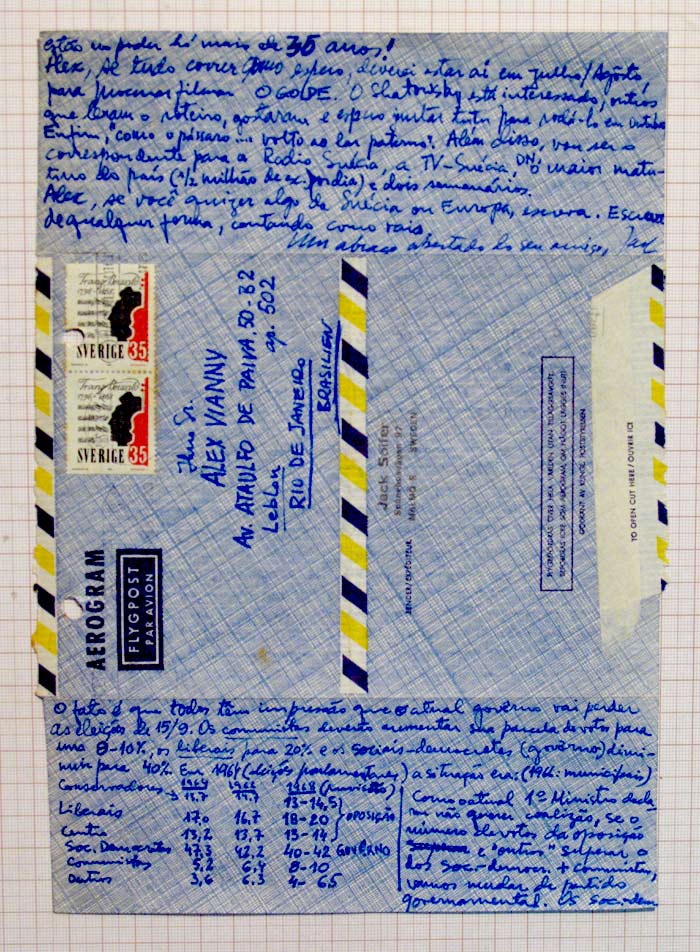 estão no poder há mais de 35 anos!
Alex, se tudo correr como espero, deverei estar aí em julho/Agosto
para filmar O GOLPE. O Shatovsky está interessado, outros
que leram o roteiro, gostaram e espero para rodá-lo em
Enfim, "como o pássaro... volto ao lar paterno". Além disso, vou ser o
correspondente para a Radio Suécia, a TV-Suécia, DN, o maior matu-
tino do país (1/2 milhão de ex. por dia) e dois semanários.
Alex, se você quizer algo da Suécia ou Europa, escreva. Escreva
de qualquer forma, contando como vais.
Um abraço apertado do seu amigo, Jack
SVERIGE 35
SVERIGE 35
AEROGRAM
FLYGPOST
PAR AVION
Ilmo Sr.
ALEX VIANNY
AV. ATAULFO DE PAIVA, 50-B2
Leblon ap. 502
RIO DE JANEIRO
BRASILIEN
SENDER/EXPÉDITEUR
Jack Soifer
MALMÖ S SWEDEN
BEFORDRAS ÖVER HELA VÄRLDEN UTAN TILLÄGGSAVGIFT.
BEFORDRAS ICKE SOM AEROGRAM, OM NÅGOT ILÄGGES (INUTI)
GODKÄNT AV KUNGL. POSTSTYRELSEN
TO OPEN CUT HERE / OUVRIR ICI
O fato é que todos têm impressão que o atual govêrno vai perder
as eleições de 15/9. Os comunistas deverão aumentar sua parcela de votos para
uns 8-10%, os liberais para 20% e os sociais-democratas (govêrno) dimi-
nuir para 40%. Em 1964 (eleições parlamentares) a situação era: (1966: municipais)
1964 1966 1968 (previsões)
Conservadores 13,7 14,7 13-14,5
Liberais 17,0 16,7 18-20 OPOSIÇÃO
Centro 13,2 13,7 13-14
Soc. Democratas 47,3 42,2 40-42 GOVÊRNO
Comunistas 5,2 6,4 8-10
Outros 3,6 6.3 4-6.5
Como o atual 1º Ministro decla-
rou não querer coalizão, se o
número de votos da oposição
e "outros" superar o
dos soc.-democr. + comunistas,
vamos mudar de partido
governamental. Os soc.-dem